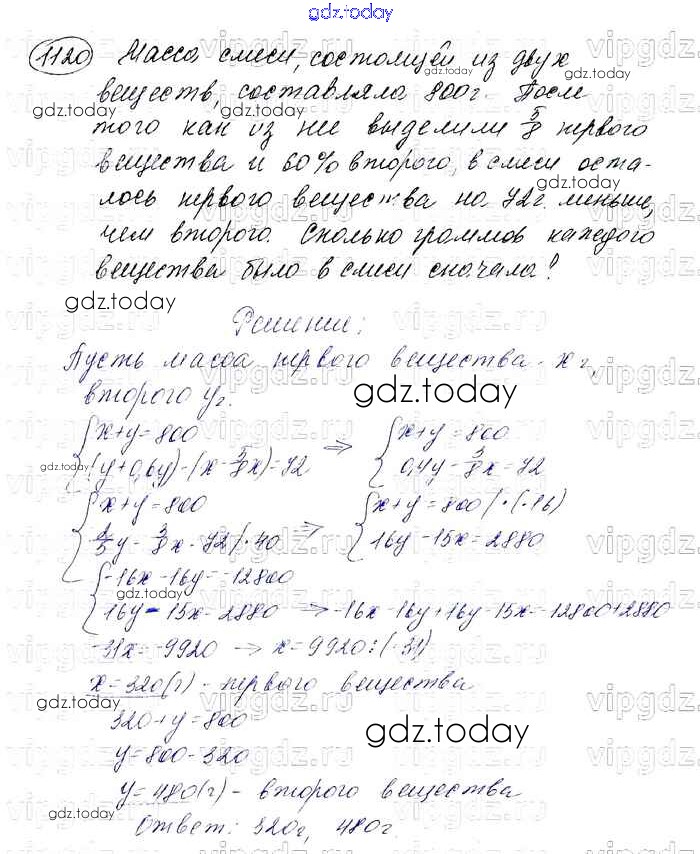 gdz.today
1120 Масса смеси, состоящей из двух
веществ, составляла 800г. После
того как из нее выделили 5/8 первого
вещества и 60% второго, в смеси оста-
лось первого вещества на 72г. меньше,
чем второго. Сколько граммов каждого
вещества было в смеси сначала?
Решение:
Пусть масса первого вещества - x г,
второго y г.
{x+y=800
(y+0,6y)-(x-5/8x)=72 => {x+y=800
0,4y-3/8x=72
{x+y=800
2/5y-3/8x=72|·40 => {x+y=800|·(-16)
16y-15x=2880
{-16x-16y=-12800
16y-15x=2880 -> -16x-16y+16y-15x=-12800+2880
-31x=-9920 -> x=9920:(-31)
x=320(г) - первого вещества
320+y=800
y=800-320
y=480(г) - второго вещества
Ответ: 320г, 480г.